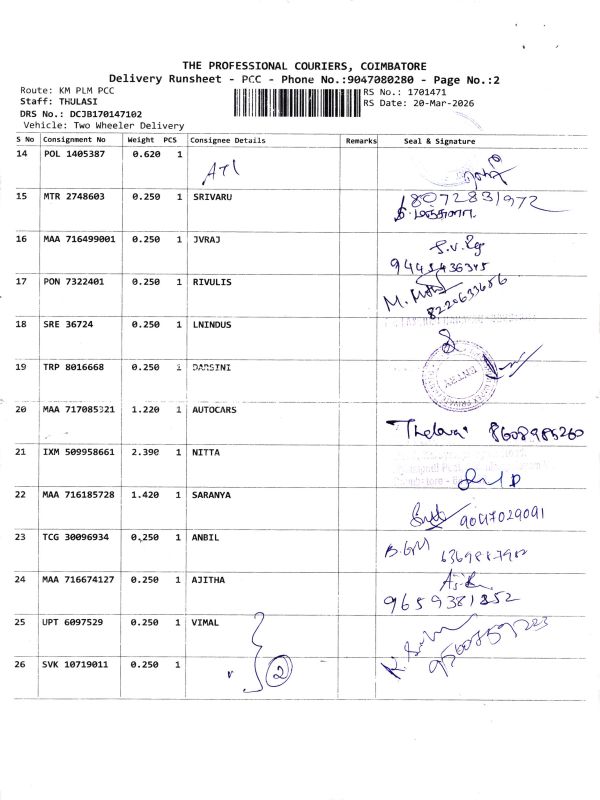 THE PROFESSIONAL COURIERS, COIMBATORE
Delivery Runsheet - PCC - Phone No.:9047080280 - Page No.:2
Route: KM PLM PCC
Staff: THULASI
DRS No.: DCJB170147102
Vehicle: Two Wheeler Delivery
RS No.: 1701471
RS Date: 20-Mar-2026
S No Consignment No Weight PCS Consignee Details Remarks Seal & Signature
14 POL 1405387 0.620 1
15 MTR 2748603 0.250 1 SRIVARU 8072831972
16 MAA 716499001 0.250 1 JVRAJ
9445436345
17 PON 7322401 0.250 1 RIVULIS
8220633656
18 SRE 36724 0.250 1 LNINDUS
19 TRP 8016668 0.250 1 DARSINI
ENTRY
20 MAA 717085321 1.220 1 AUTOCARS
8608985260
21 IXM 509958661 2.390 1 NITTA
22 MAA 716185728 1.420 1 SARANYA
9047029091
23 TCG 30096934 0.250 1 ANBIL
24 MAA 716674127 0.250 1 AJITHA
9659381352
25 UPT 6097529 0.250 1 VIMAL
26 SVK 10719011 0.250 1 2